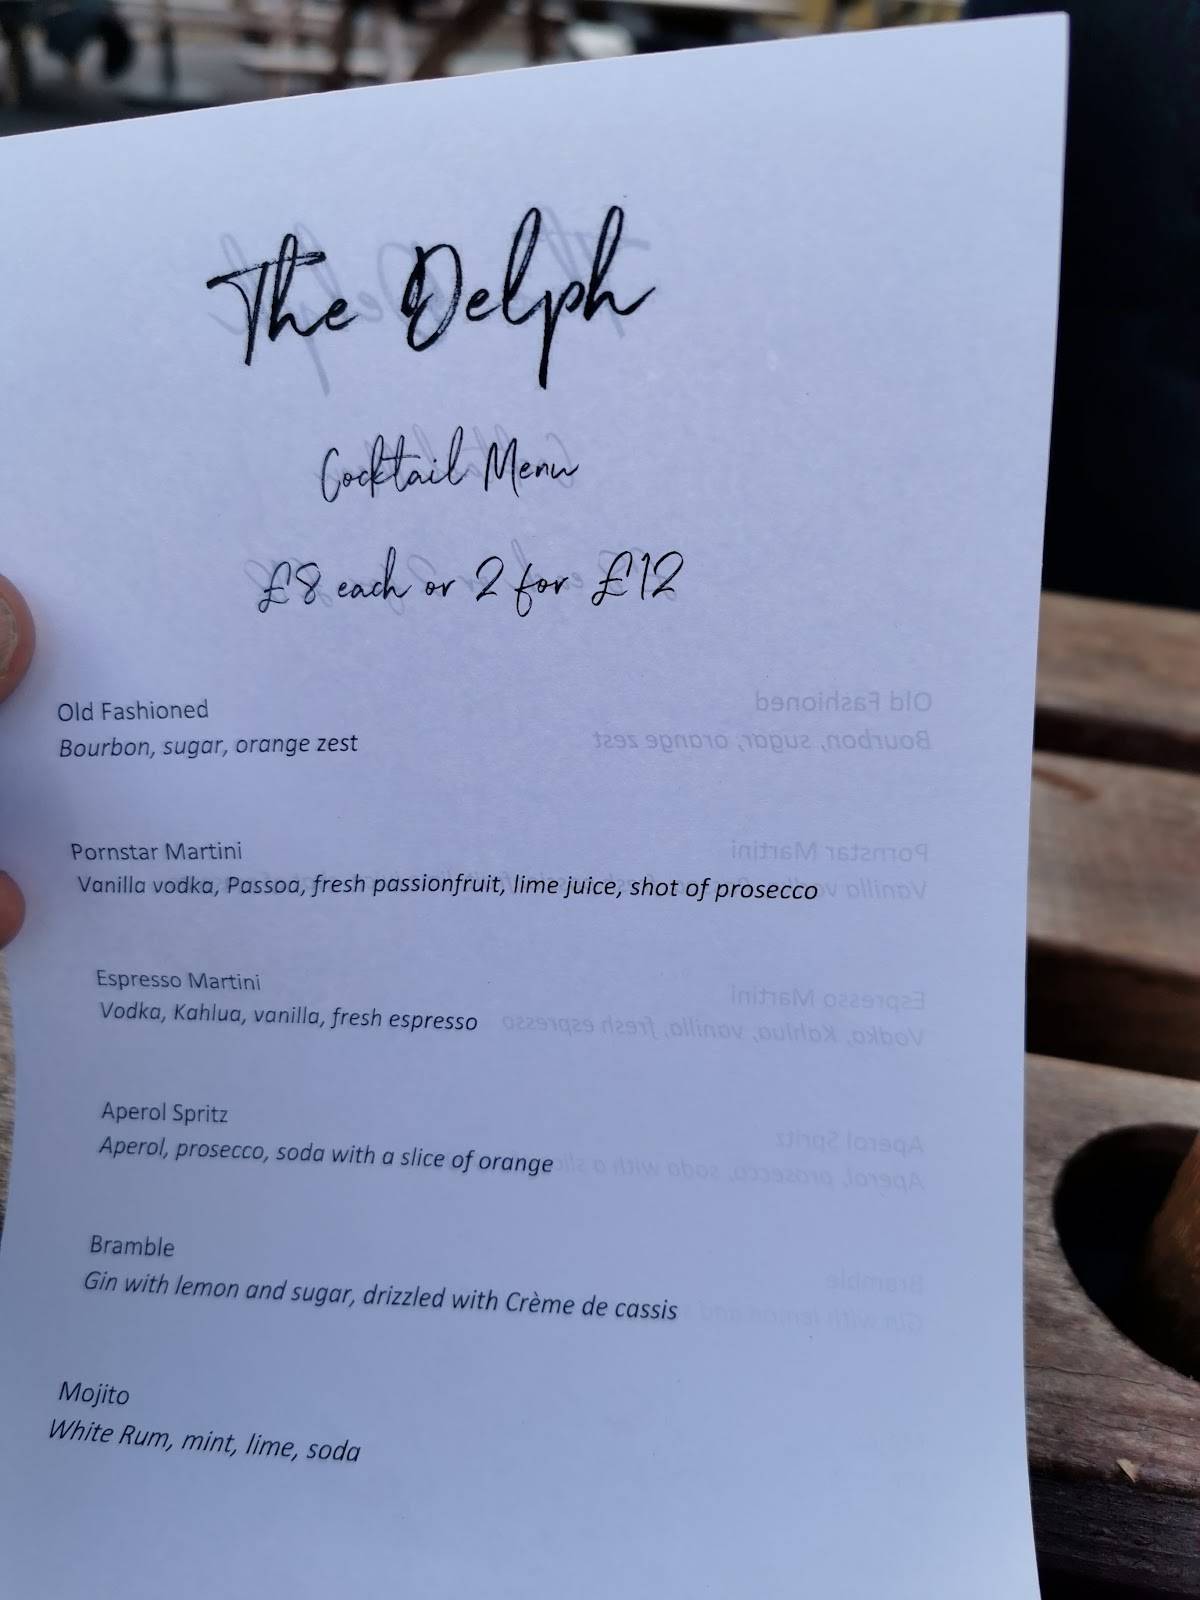 The Delph
Cocktail Menu
£8 each or 2 for £12
Old Fashioned
Bourbon, sugar, orange zest
Pornstar Martini
Vanilla vodka, Passoa, fresh passionfruit, lime juice, shot of prosecco
Espresso Martini
Vodka, Kahlua, vanilla, fresh espresso
Aperol Spritz
Aperol, prosecco, soda with a slice of orange
Bramble
Gin with lemon and sugar, drizzled with Crème de cassis
Mojito
White Rum, mint, lime, soda